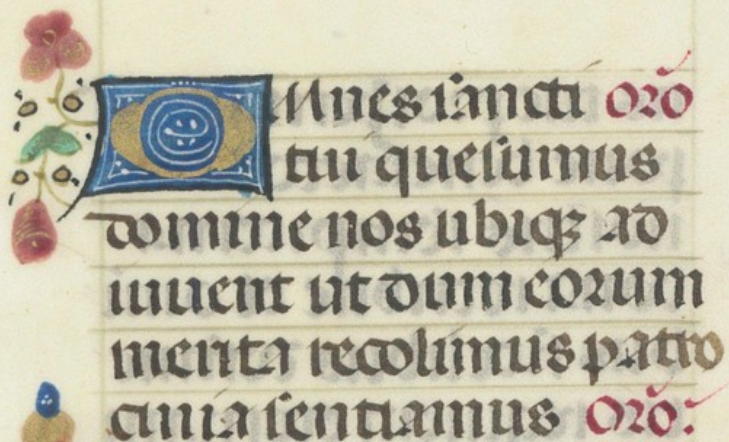 OMnes sancti oro
tui quesumus
domine nos ubiqꝫ ad
iuuent ut dum eorum
merita recolimus patro
cinia sentiamus oro: